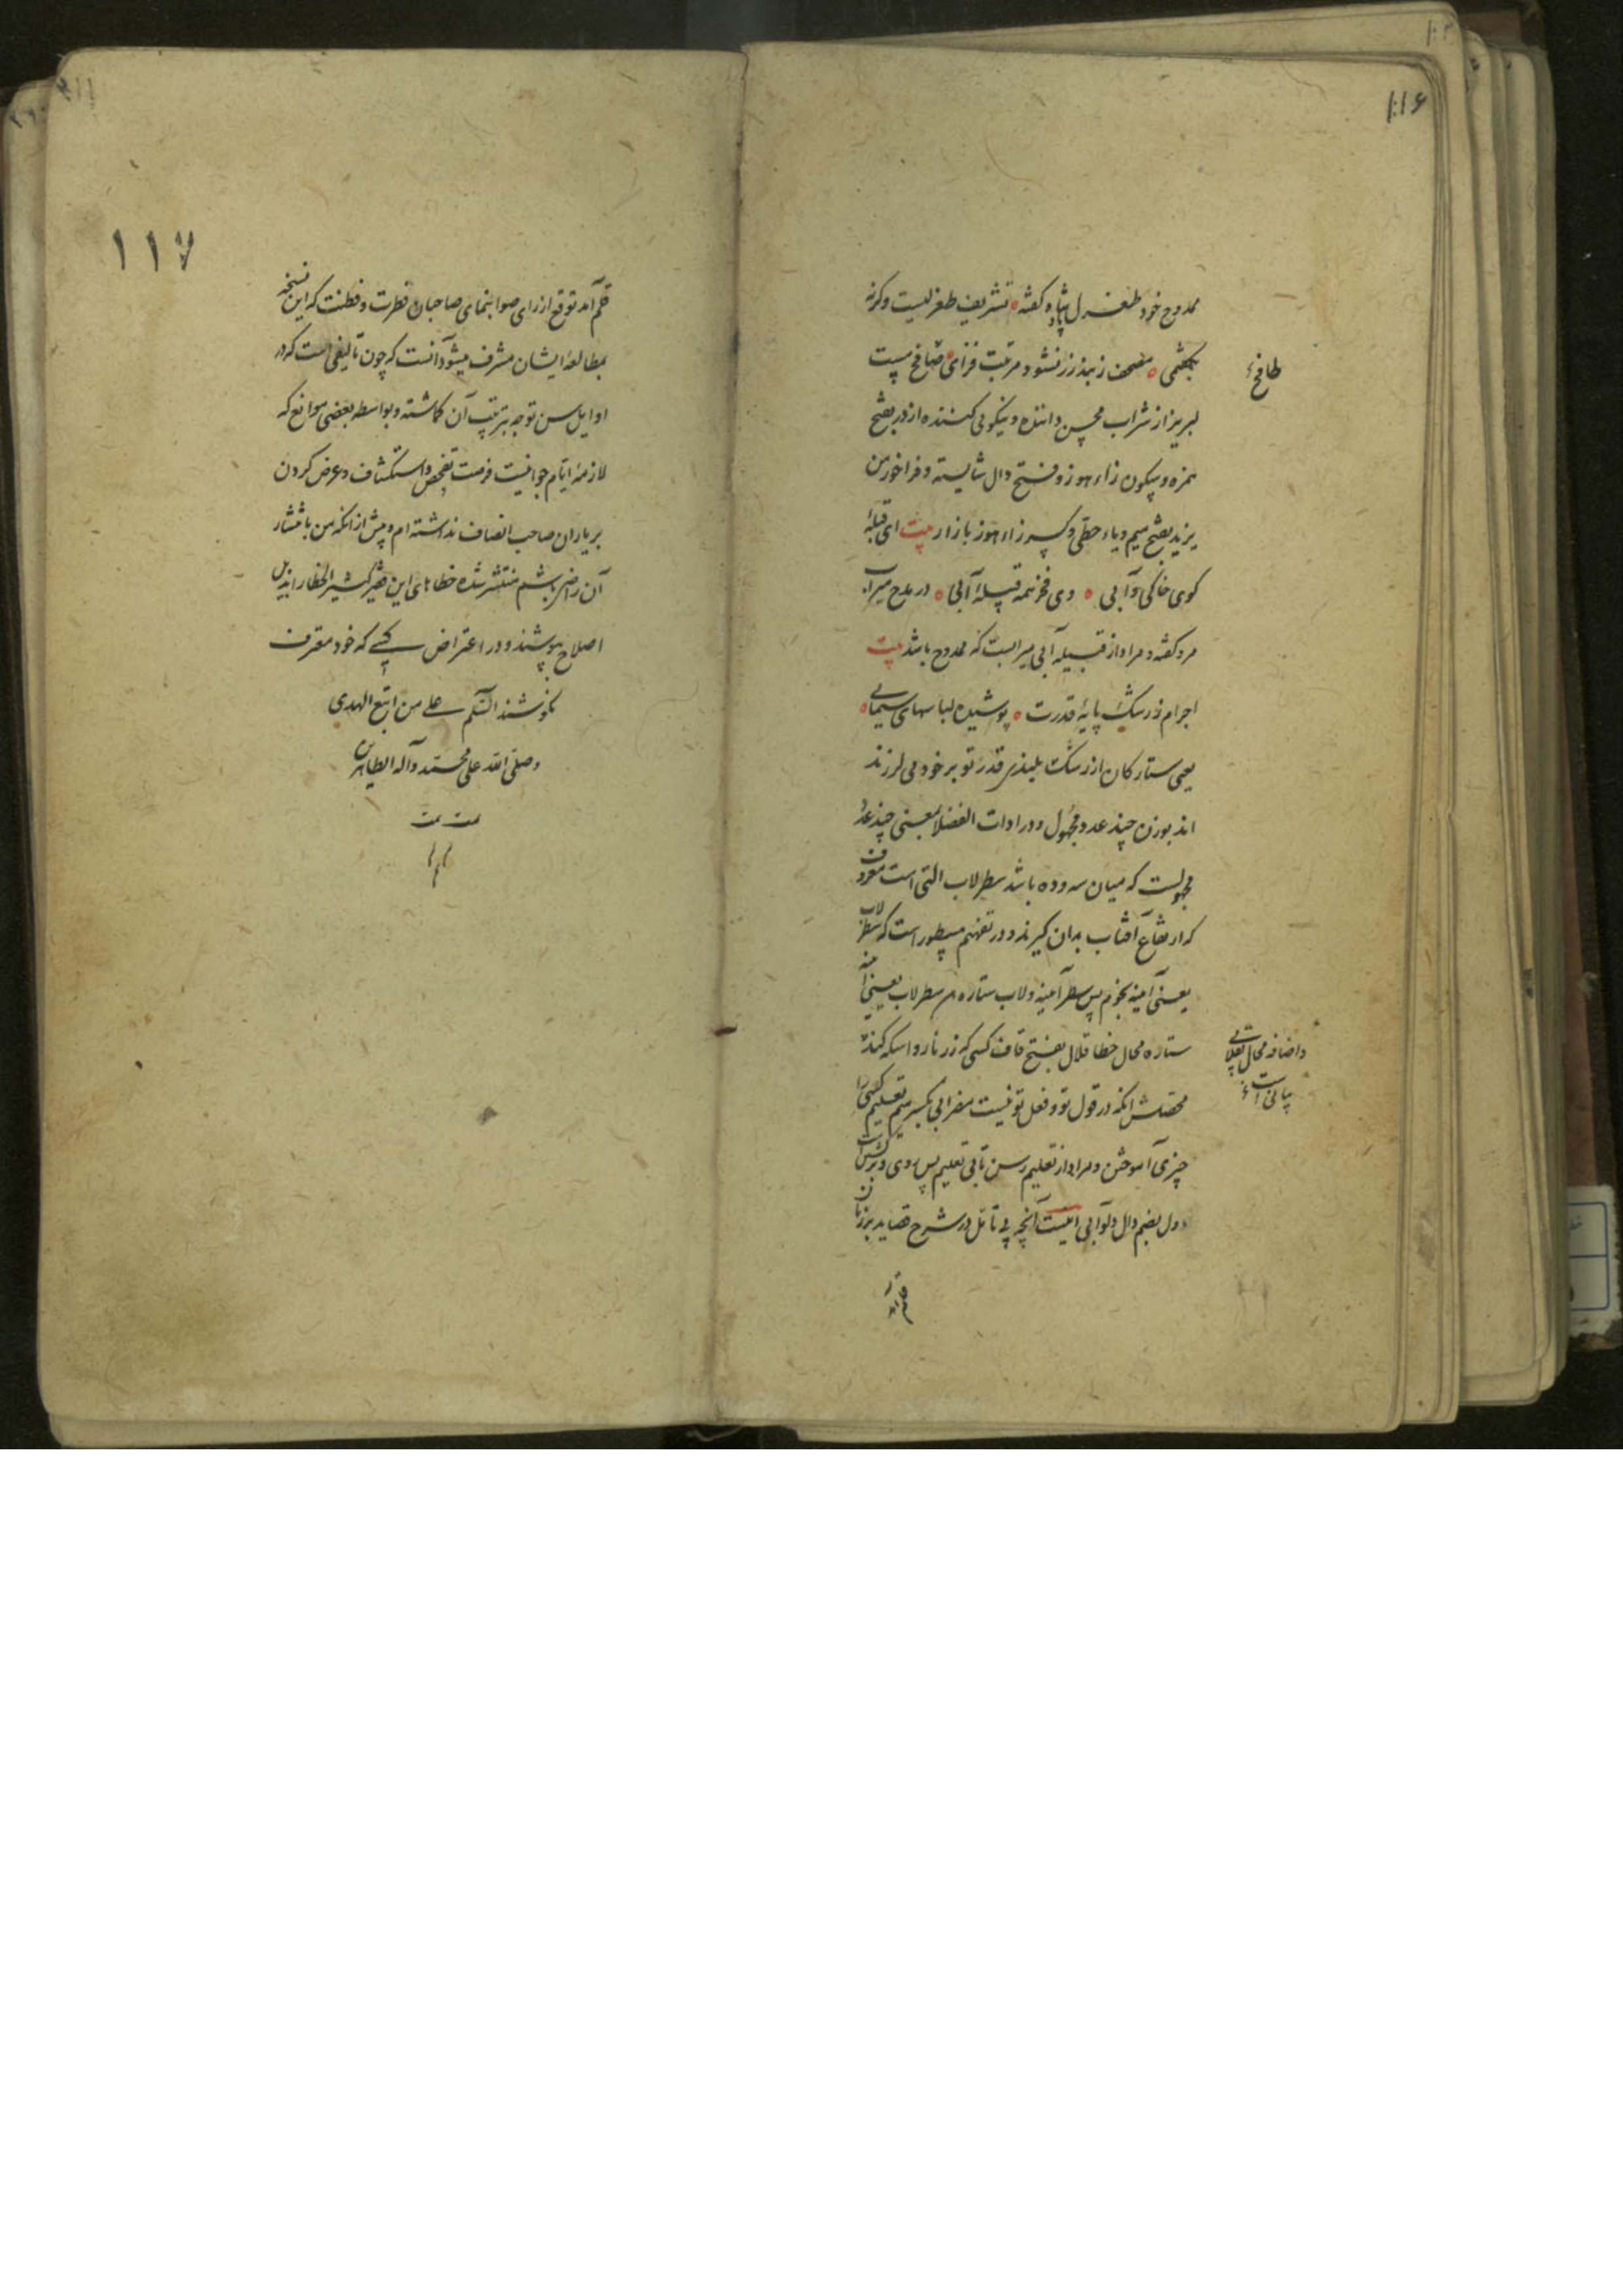 ۱۱۶
ممدوح خود طغرل شاه گفته تشریف طغرلیست وگرنه
طافح
مصحف زبند زر نشود مرتبت فزای طافح مست
لبریز از شراب محسن داننده و نیکویی کننده ازدر بفتح
همزه و سکون زاء هوز و فتح دال شایسته و فراخور من
یزید بفتح میم و یاء حطی و کسر زاء هوز بازار بیت ای قبلهٔ
کوی خاکی و آبی وی فخر همه قبیلهٔ آبی در مدح میراب
مرو گفته و مراد از قبیله آبی میرابست که ممدوح باشد بیت
اجرام ز رشک پایهٔ قدرت پوشیده لباسهای سیمابی
یعنی ستارگان از رشک بلندی قدر تو بر خود می لرزند
اند بوزن چند عدد مجهول و در ادات الفضلا بمعنی چند عدد
مجهولست که میان سه و ده باشد سطرلاب التی است معروف
که ارتفاع آفتاب بدان گیرند و در تفهیم مسطور است که سطرلاب
یعنی آمینه نجوم پس سطر آمینه و لاب ستاره سطرلاب یعنی آمینه
ستاره محال خطا قلاب بفتح قاف کسی که زر ناروا سکه کند
واضافه محال بقلابی
بیانی است
محصلش انکه در قول تو و فعل تو نیست مضرابی بکسر میم تعلیم کسی را
چیزی آموختن و مراد از تعلیم رسن تابی تعلیم پس روی و برگشت
دول بضم دال دلو آبی اینست آنچه بی تامل در شرح قصاید بر زبان
قلم آمد
۱۱۷
قلم آمد توقع از رای صوابنمای صاحبان فطرت و فطنت که این نسخه
بمطالعهٔ ایشان مشرف میشود آنست که چون تألیفی است که در
اوایل سن توجه بترتیب آن گماشته و بواسطه بعضی موانع که
لازمهٔ ایام جوانیست فرصت تفحص و استکشاف و عرض کردن
بر یاران صاحب انصاف نداشته ام و پیش از انکه من بانتشار
آن راضی باشم منتشر شده خطاهای این فقیر کثیر الخطا را بذیل
اصلاح بپوشند و در اعتراض کسی که خود معترف
نکوشند السلام علی من اتبع الهدی
وصلی الله علی محمد وآله الطاهرین
تمت تمت